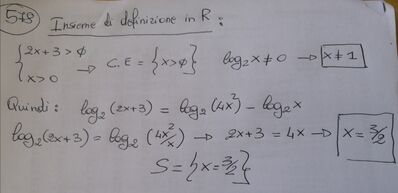 578 Insieme di definizione in R:
{2x+3>0
x>0 → C.E = {x>0} log₂x≠0 → x≠1
Quindi: log₂(2x+3) = log₂(4x²) - log₂x
log₂(2x+3) = log₂(4x²/x) → 2x+3 = 4x → x = 3/2
S = {x = 3/2}